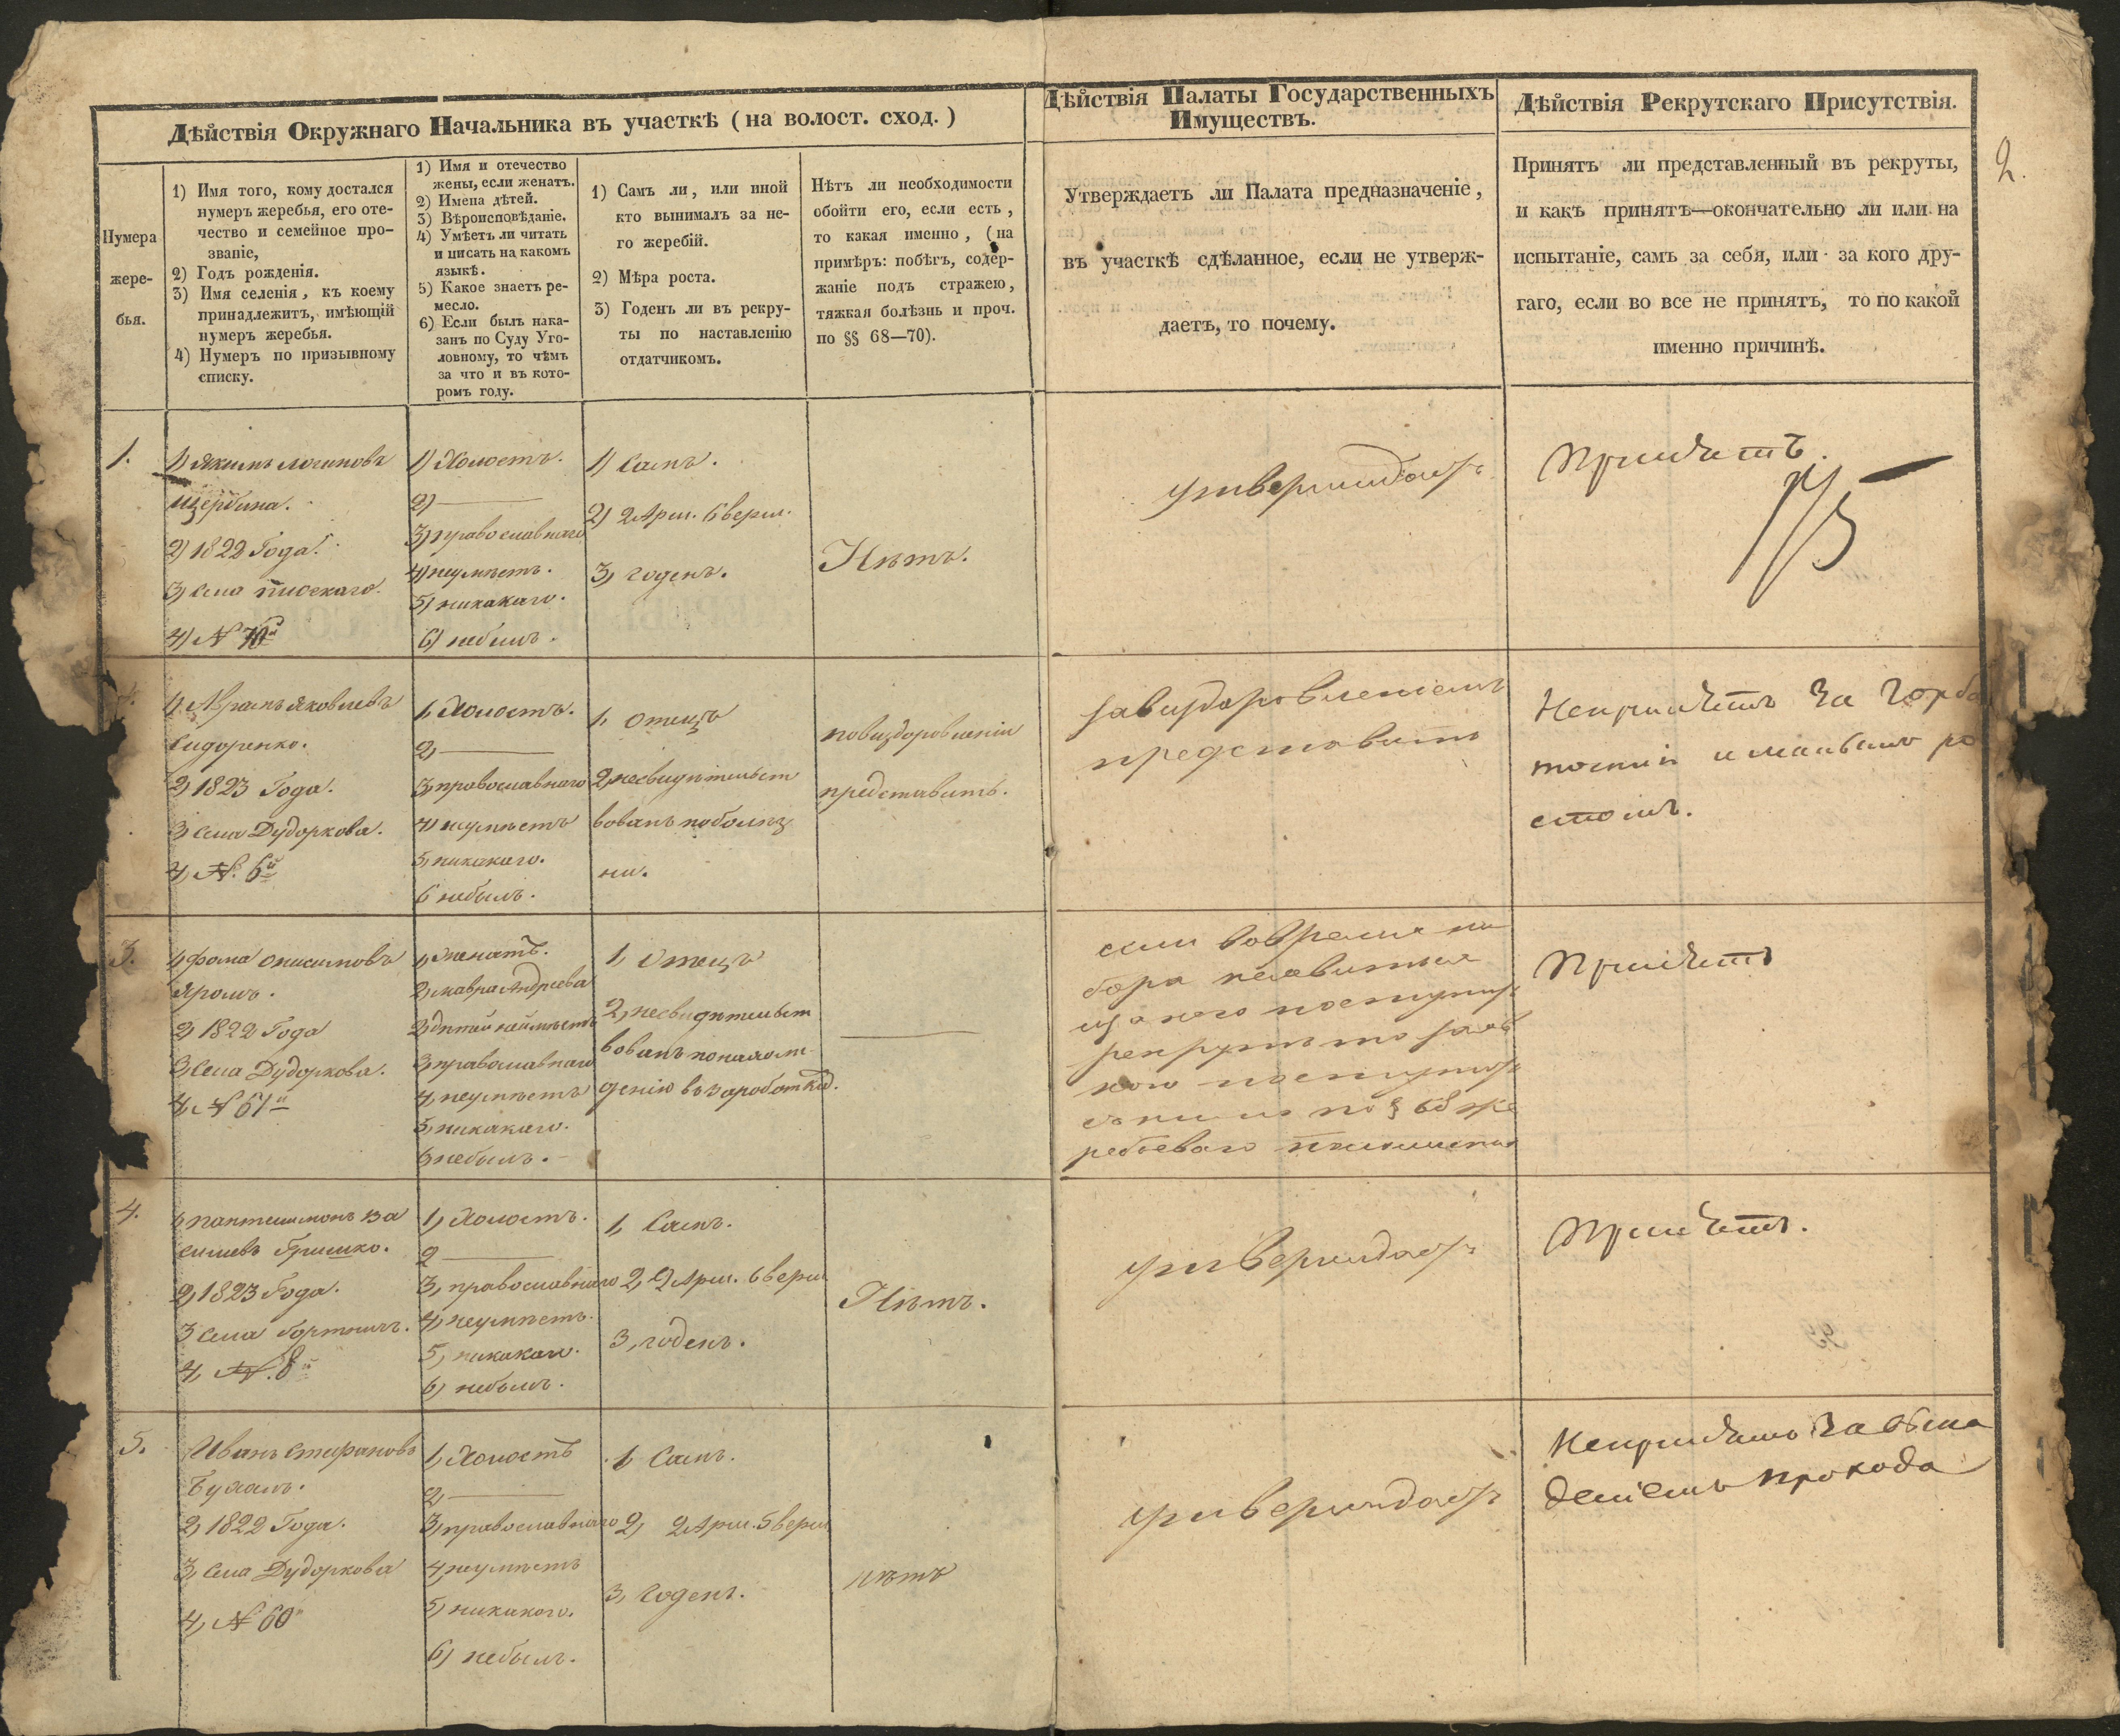 Дѣйствія Окружнаго Начальника въ участкѣ (на волост. сход.)
Дѣйствія Палаты Государственныхъ
Имуществъ.
Дѣйствія Рекрутскаго Присутствія.
2.
Нумера
жере-
бья.
1) Имя того, кому достался
нумеръ жеребья, его оте-
чество и семейное про-
званіе,
2) Годъ рожденія.
3) Имя селенія, къ коему
принадлежитъ, имѣющій
нумеръ жеребья.
4) Нумеръ по призывному
списку.
1) Имя и отечество
жены, если женатъ.
2) Имена дѣтей.
3) Вѣроисповѣданіе.
4) Умѣетъ ли читать
и писать на какомъ
языкѣ.
5) Какое знаетъ ре-
месло.
6) Если былъ нака-
занъ по Суду Уго-
ловному, то чѣмъ
за что и въ кото-
ромъ году.
1) Самъ ли, или иной
кто вынималъ за не-
го жеребій.
2) Мѣра роста.
3) Годенъ ли въ рекру-
ты по наставленію
отдатчикомъ.
Нѣтъ ли необходимости
обойти его, если есть,
то какая именно, (на
примѣръ: побѣгъ, содер-
жаніе подъ стражею,
тяжкая болѣзнь и проч.
по §§ 68—70).
Утверждаетъ ли Палата предназначеніе,
въ участкѣ сдѣланное, если не утверж-
даетъ, то почему.
Принятъ ли представленный въ рекруты,
и какъ принятъ—окончательно ли или на
испытаніе, самъ за себя, или за кого дру-
гаго, если во все не принятъ, то по какой
именно причинѣ.
1.
1) Якимъ Логиновъ
Щербина.
2) 1822 Года.
3) Села
4) N
1) Холостъ.
2) —
3) православнаго
4) неумѣетъ.
5) никакаго.
6) небылъ.
1) Самъ.
2) 2 Арш. 6 верш.
3, годенъ.
Нѣтъ.
утверждаетъ
Принятъ.
1, Аврамъ Яковлевъ
Сидоренко.
2, 1823 Года.
3, Села Дудоркова.
4, N. 6й
1, Холостъ.
2, —
3, православнаго
4, неумѣетъ
5, никакаго.
6 небылъ.
1, Отецъ
2, несвидѣтельст
вованъ поболѣз
ни.
повиздоровленіи
представить.
завиздоровленіемъ
представить
Непринятъ за горба
тостій и малымъ ро
стомъ.
3.
1, Фома Онисимовъ
Яромъ.
2, 1822 Года
3, Села Дудоркова.
4, N 61й
1, Женатъ.
2, Мавра Андреева
2, дѣтей неимѣетъ
3, православнаго
4, неумѣетъ
5, никакаго.
6, небылъ.
1, Отецъ
2, несвидѣтельст
вованъ
въ заработкѣ.
—
если вовремя на
бора неявится
рекрутъ то
по § 68 же
ребьеваго
Принятъ
4.
1, Пантелимонъ Ва
сильевъ Гришко.
2, 1823 Года.
3 Села
4, N. 8й
1, Холостъ.
2 —
3, православнаго
4, неумѣетъ.
5, никакаго.
6) небылъ.
1, Самъ.
2, 2 Арш. 6 верш
3, годенъ.
Нѣтъ.
утверждаетъ
Принятъ.
5.
Иванъ Стефановъ
Бухалъ.
2, 1822 Года.
3, Села Дудоркова
4, N 60й
1, Холостъ
2, —
3, православнаго
4, неумѣетъ
5, никакого.
6) небылъ.
1, Самъ.
2, 2 Арш. 5 верш
3, годенъ.
нѣтъ
утверждаетъ
Непринятъ за